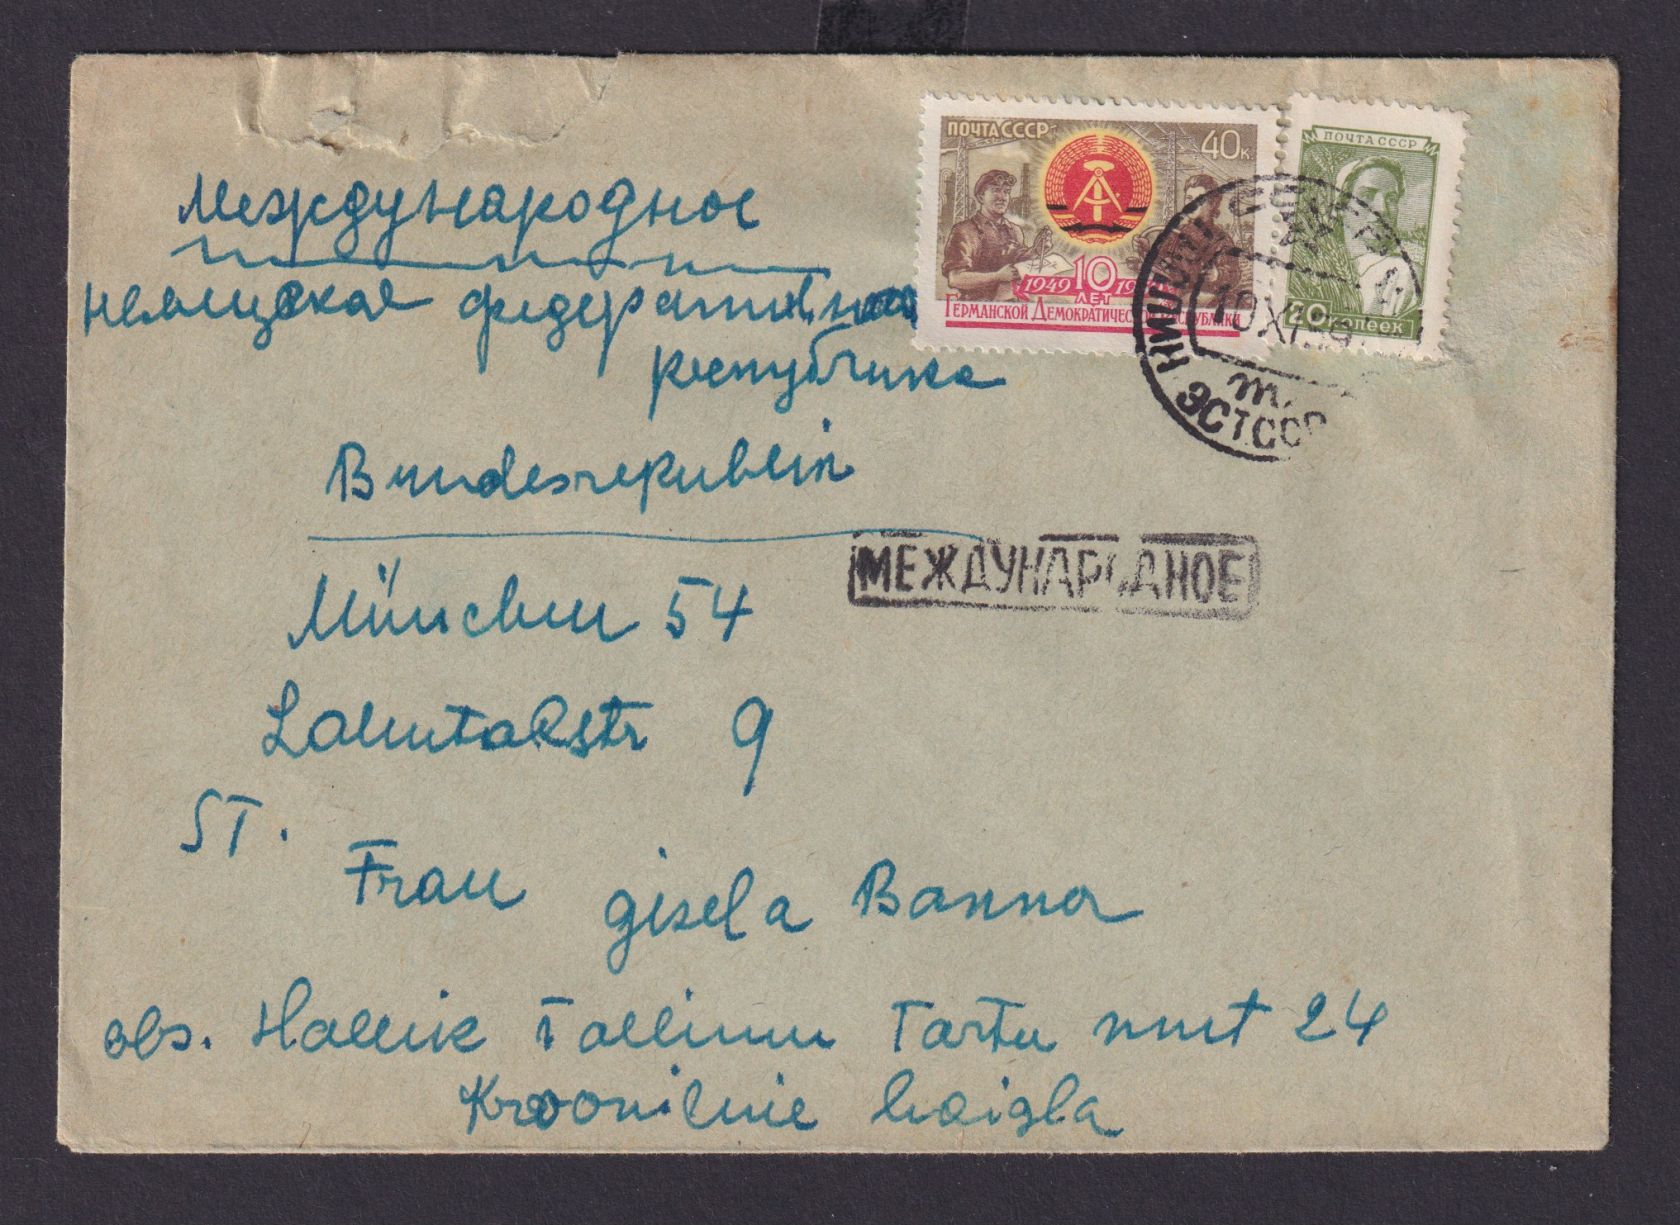 ПОЧТА СССР 40 к.
1949 10 ЛЕТ
ГЕРМАНСКОЙ ДЕМОКРАТИЧЕСКОЙ РЕСПУБЛИКИ
ПОЧТА СССР
20 КОПЕЕК
10 XI 59
ЭСТ.ССР
международное
немецкое федеративная
республика
Bundesrepublik
МЕЖДУНАРОДНОЕ
München 54
9
ST.
Frau gisela Banna
abs. Tallinn Tartu mnt 24
Krooniline haigla